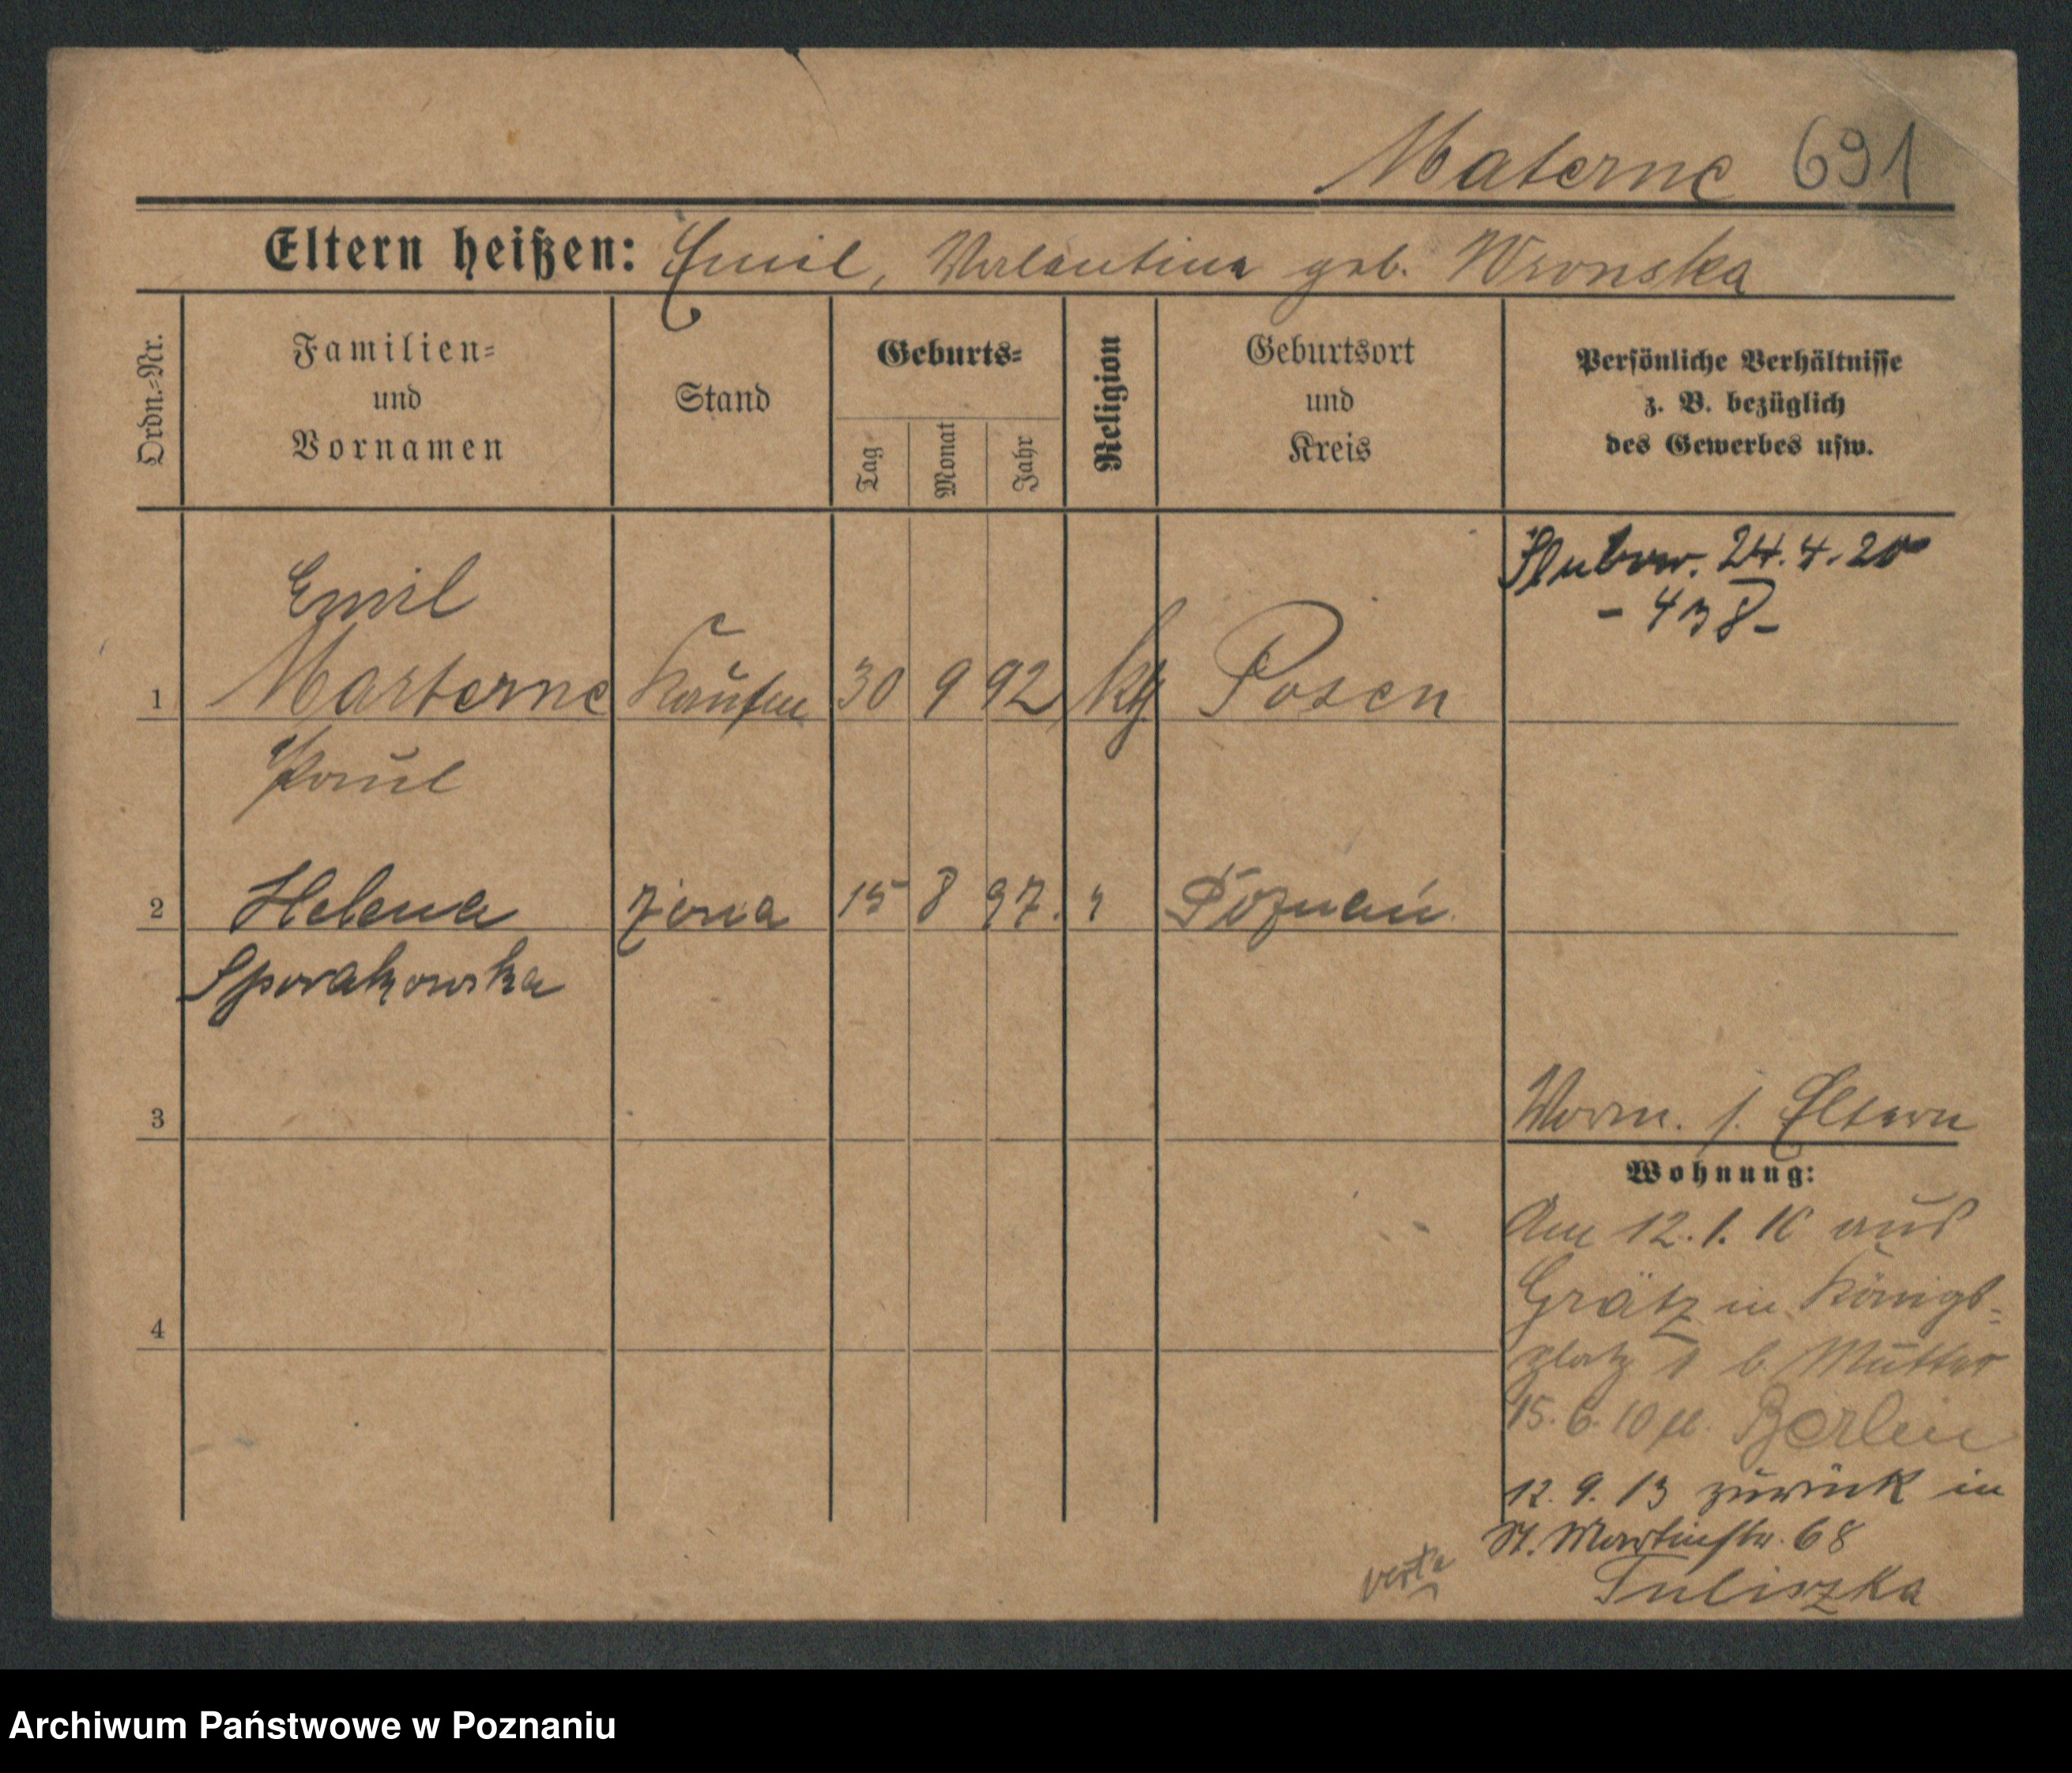 Materne 691
Eltern heißen: Emil, Valentina geb. Wronska
Ordn.-Nr.
Familien-
und
Vornamen
Stand
Geburts-
Tag
Monat
Jahr
Religion
Geburtsort
und
Kreis
Persönliche Verhältnisse
z. B. bezüglich
des Gewerbes usw.
24.4.20
- 438 -
Emil
1 Marterne Kaufm 30 9 92 kth Posen
Paul
2 Helena żona 15 8 97. " Poznań
Sporakowska
3
Vorm. s. Eltern
Wohnung:
Am 12.1.10 aus
Grätz in Königs-
4
platz b Mutter
15.6.10 Berlin
12.9.13 zurück in
St. Martinstr. 68
Tuliszka
verte
Archiwum Państwowe w Poznaniu